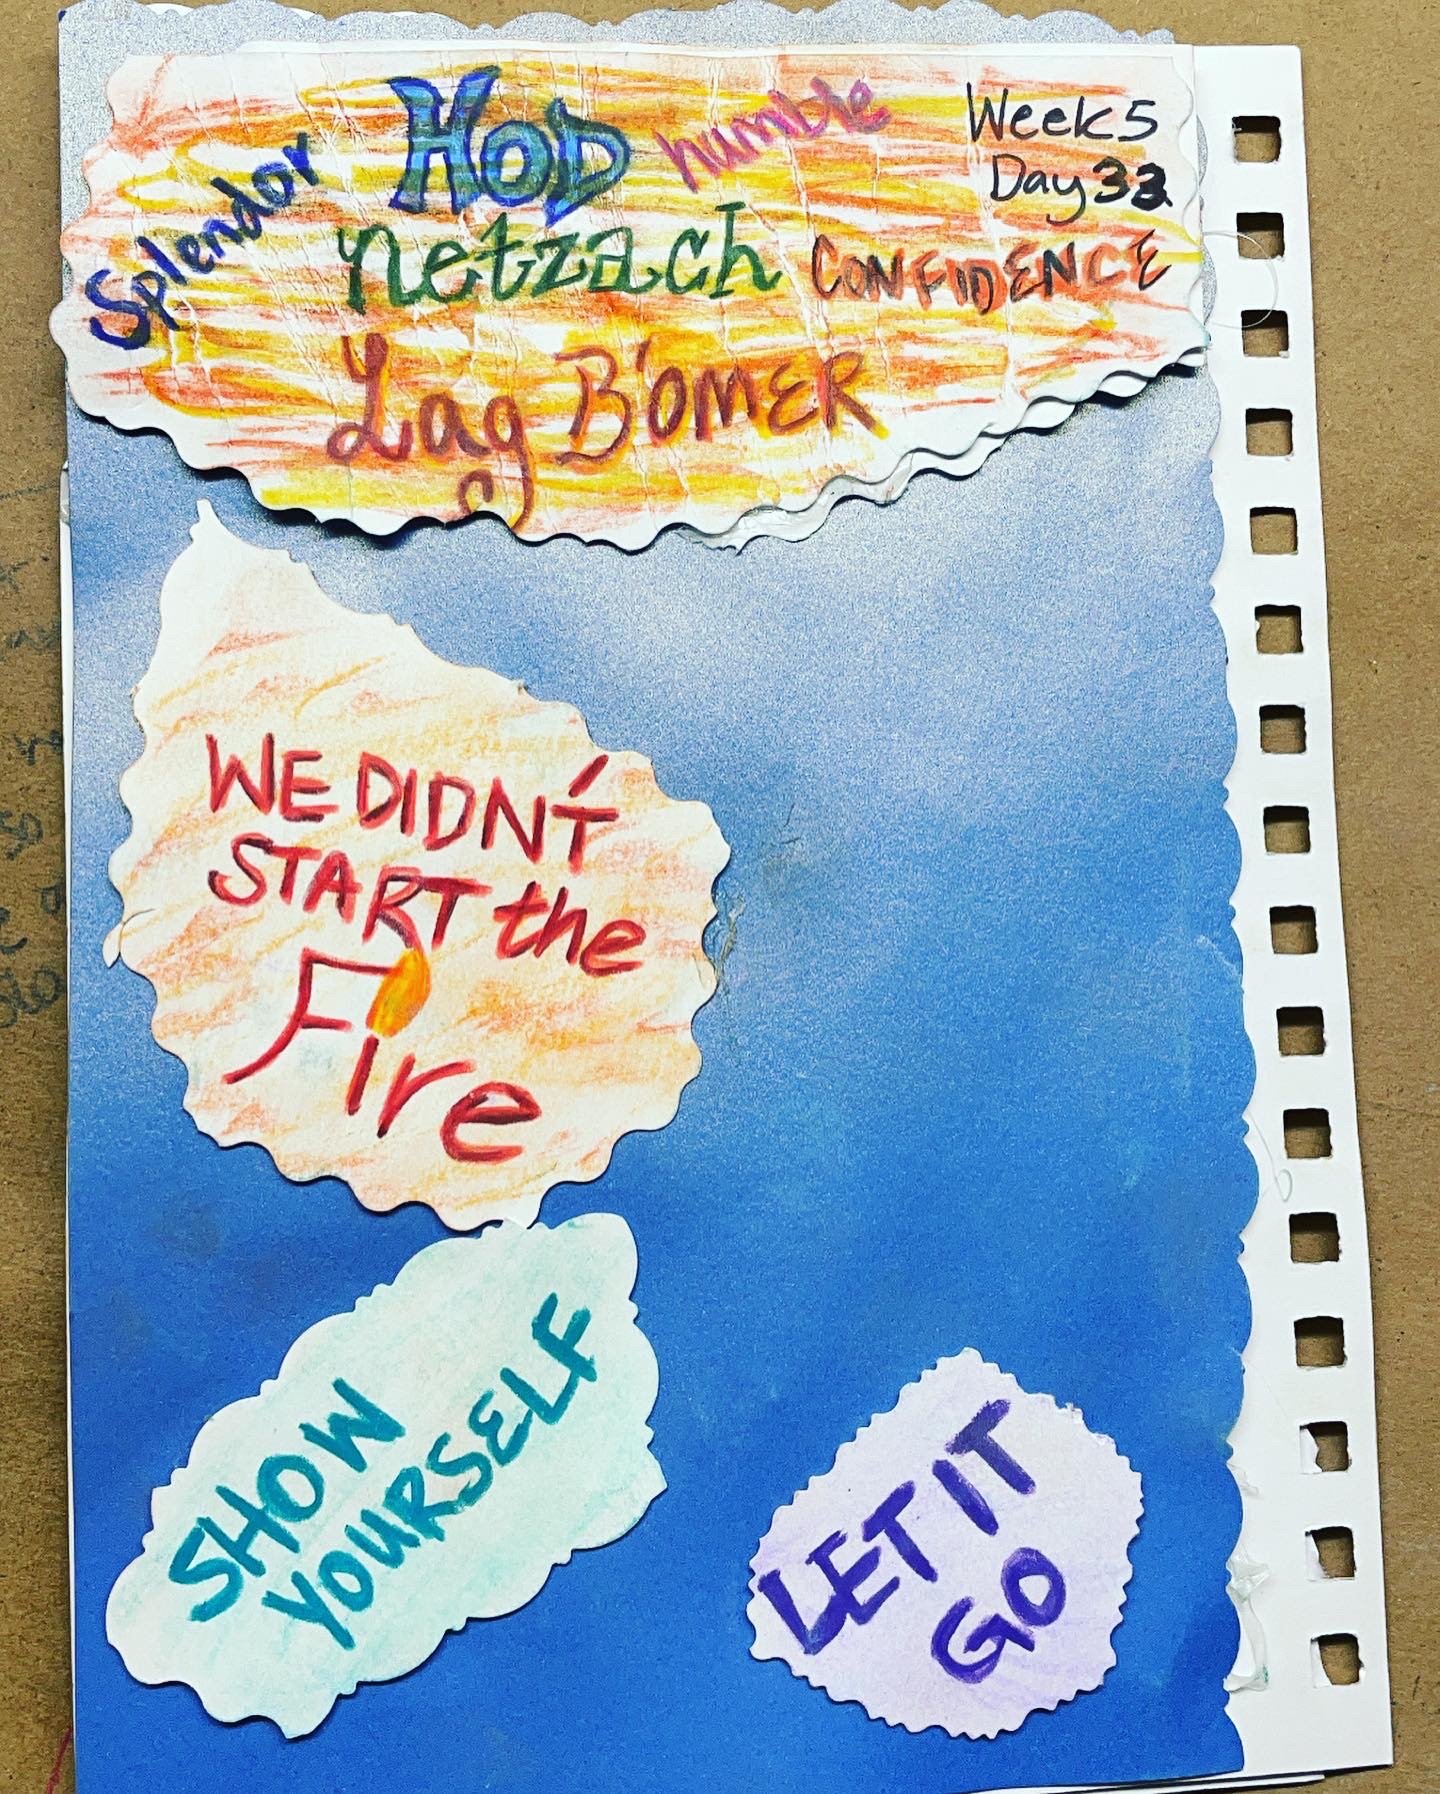 Splendor HOD humble Week 5
Day 33
netzach CONFIDENCE
Lag B'OMER
WE DIDN'T
START the
Fire
SHOW
YOURSELF
LET IT
GO